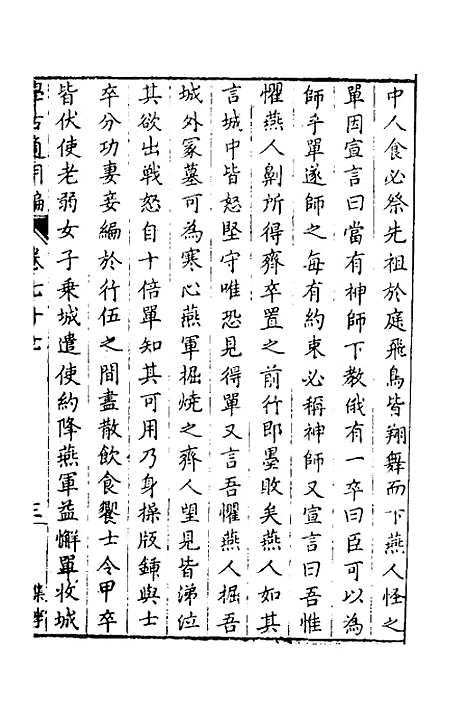 中人食必祭先祖於庭飛鳥皆翔舞而下燕人怪之
單因宣言曰當有神師下教俄有一卒曰臣可以為
師乎單遂師之每有約束必稱神師又宣言曰吾惟
懼燕人劓所得齊卒置之前行即墨敗矣燕人如其
言城中皆怒堅守唯恐見得單又言吾懼燕人掘吾
城外冢墓可為寒心燕軍掘燒之齊人望見皆涕泣
其欲出戰怒自十倍單知其可用乃身操版鍤與士
卒分功妻妾編於行伍之間盡散飲食饗士令甲卒
皆伏使老弱女子乘城遣使約降燕軍益懈單收城
學古適用編 卷七十七 三